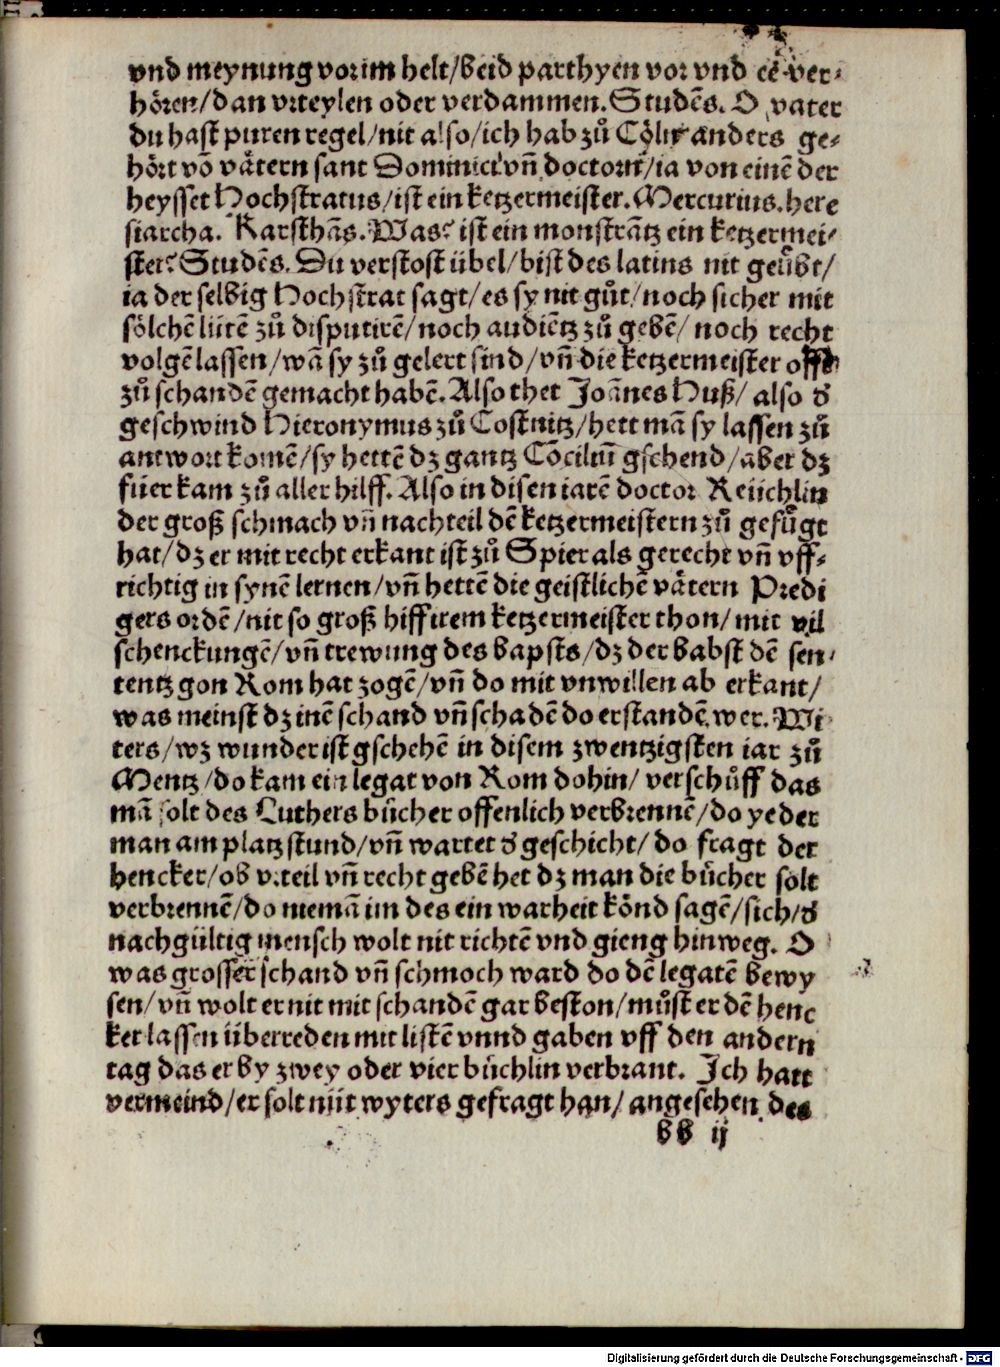 vnd meynung vorim helt/beid parthyen vor vnd ee ver-
hören/dan vrteylen oder verdammen. Studēs. O vater
du hast puren regel/nit also/ich hab zů Cöln anders ge-
hört vō vätern sant Dominici vñ doctorn/ia von einē der
heysset Hochstratus/ist ein ketzermeister. Mercurius. here
siarcha. Karsthās. Was? ist ein monstrātz ein ketzermei-
ster? Studēs. Du verstost übel/bist des latins nit geübt/
ia der selbig Hochstrat sagt/es sy nit gůt/noch sicher mit
sölchē lütē zů disputirē/noch audiētz zů gebē/ noch recht
volgē lassen/wā sy zů gelert sind/vñ die ketzermeister offt
zů schandē gemacht habē. Also thet Joānes Huß/ also d̕
geschwind Hieronymus zů Costnitz/hett mā sy lassen zů
antwort komē/sy hettē dz gantz Cōciliū gschend/aber dz
füer kam zů aller hilff. Also in disen iarē doctor Reüchlin
der groß schmach vñ nachteil dē ketzermeistern zů gefůgt
hat/dz er mit recht erkant ist zů Spier als gerecht vñ vff-
richtig in synē lernen/vñ hettē die geistlichē vätern Predi
gers ordē/nit so groß hiff irem ketzermeister thon/mit vil
schenckungē/vñ trewung des bapsts/dz der babst dē sen-
tentz gon Rom hat zogē/vñ do mit vnwillen ab erkant/
was meinst dz inē schand vñ schadē do erstandē wer. Wi
ters/wz wunder ist gschehē in disem zwentzigsten iar zů
Mentz/do kam ein legat von Rom dohin/ verschůff das
mā solt des Luthers bücher offenlich verbrennē/do yeder
man am platz stund/vñ wartet d̕ geschicht/ do fragt der
hencker/ob vrteil vñ recht gebē het dz man die bücher solt
verbrennē/do niemā im des ein warheit könd sagē/sich/d̕
nachgültig mensch wolt nit richtē vnd gieng hinweg. O
was grosser schand vñ schmoch ward do dē legatē bewy
sen/vñ wolt er nit mit schandē gar beston/můst er dē henc
ker lassen überreden mit listē vnnd gaben vff den andern
tag das er by zwey oder vier büchlin verbrant. Ich hatt
vermeind/er solt nüt wyters gefragt han/ angesehen des
bb ij
Digitalisierung gefördert durch die Deutsche Forschungsgemeinschaft - DFG